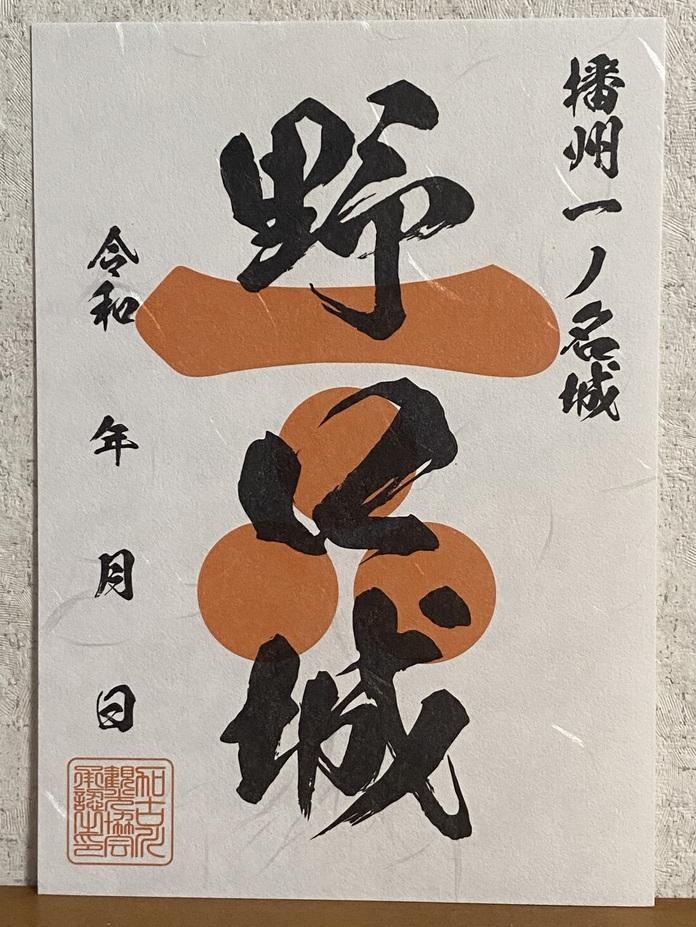 播州一ノ名城
野口城
令和 年 月 日
加古川
観光協会
承認之印